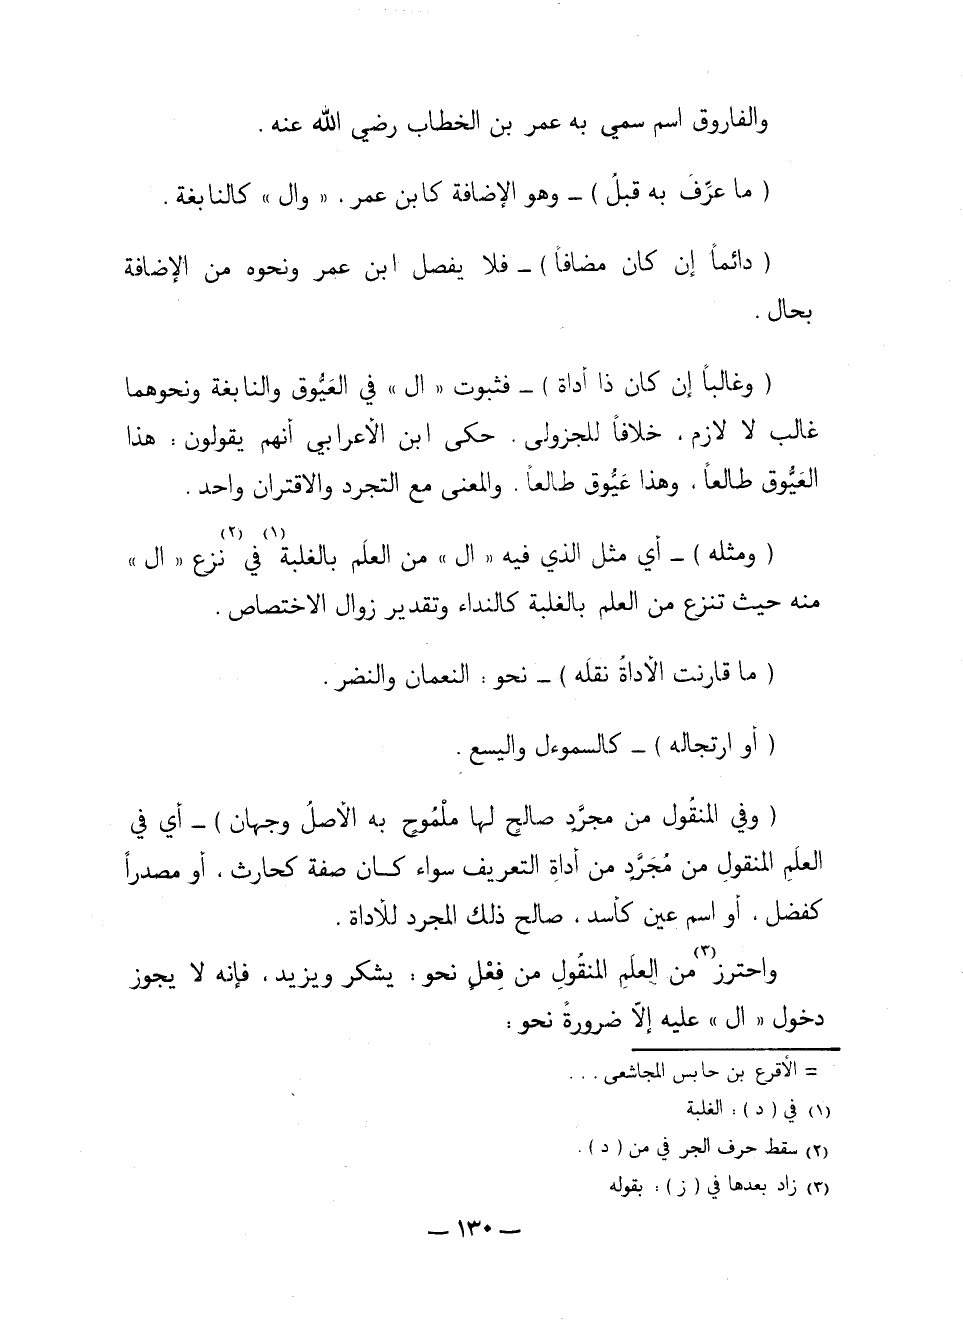 والفاروق اسم سمي به عمر بن الخطاب رضي الله عنه .
( ما عرِّفَ به قبلُ ) ــ وهو الإضافة كابن عمر ، « وال » كالنابغة .
( دائماً إن كان مضافاً ) ــ فلا يفصل ابن عمر ونحوه من الإضافة
بحال .
( وغالباً إن كان ذا أداة ) ــ فثبوت « ال » في العَيُّوق والنابغة ونحوهما
غالب لا لازم ، خلافاً للجزولى . حكى ابن الأعرابي أنهم يقولون : هذا
العَيُّوق طالعاً ، وهذا عَيُّوق طالعاً . والمعنى مع التجرد والاقتران واحد .
( ومثله ) ــ أي مثل الذي فيه « ال » من العلَم بالغلبة (١) في (٢) نزع « ال »
منه حيث تنزع من العلم بالغلبة كالنداء وتقدير زوال الاختصاص .
( ما قارنت الأداةُ نقلَه ) ــ نحو : النعمان والنضر .
( أو ارتجاله ) ــ كالسموءل واليسع .
( وفي المنقُول من مجرَّدٍ صالحٍ لها ملْمُوحٍ به الأصلُ وجهان ) ــ أي في
العلَمِ المنقولِ من مُجَرَّدٍ من أداةِ التعريف سواء كــان صفة كحارث ، أو مصدراً
كفضل ، أو اسم عين كأسد ، صالح ذلك المجرد للأداة .
واحترز (٣) من العلَمِ المنقُولِ من فِعْلٍ نحو : يشكر ويزيد ، فإنه لا يجوز
دخول « ال » عليه إلاّ ضرورةً نحو :
= الأقرع بن حابس المجاشعى ...
(١) في ( د ) : الغلبة
(٢) سقط حرف الجر في من ( د ) .
(٣) زاد بعدها في ( ز ) : بقوله
ــ ١٣٠ ــ